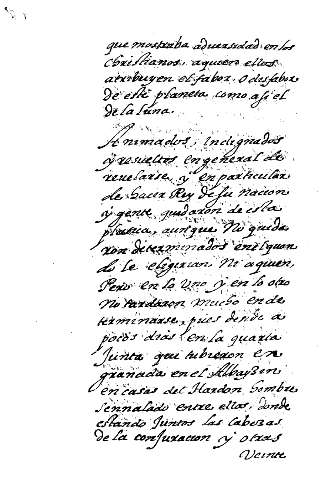 que mostraba adversidad en los
Christianos, a quien ellos
atribuyen el fabor, o desfabor
de este planeta como asi el
de la luna.
Animados, indignados
y resueltos en general de
revelarse, y en particular
de hacer Rey de su Nacion
y gente, quedaron de esta
platica, aunque No queda
ron determinados en el quan
do le eligirian Ni a quien,
Pero en lo uno y en lo otro
No tardaron mucho en de
terminarse, pues dende a
pocos dias en la quarta
Junta que tubieron en
granada en el Albayzin
en casas del Hardon hombre
sennalado entre ellos, donde
estando Juntos las cabezas
de la conjuracion y otras
Veinte